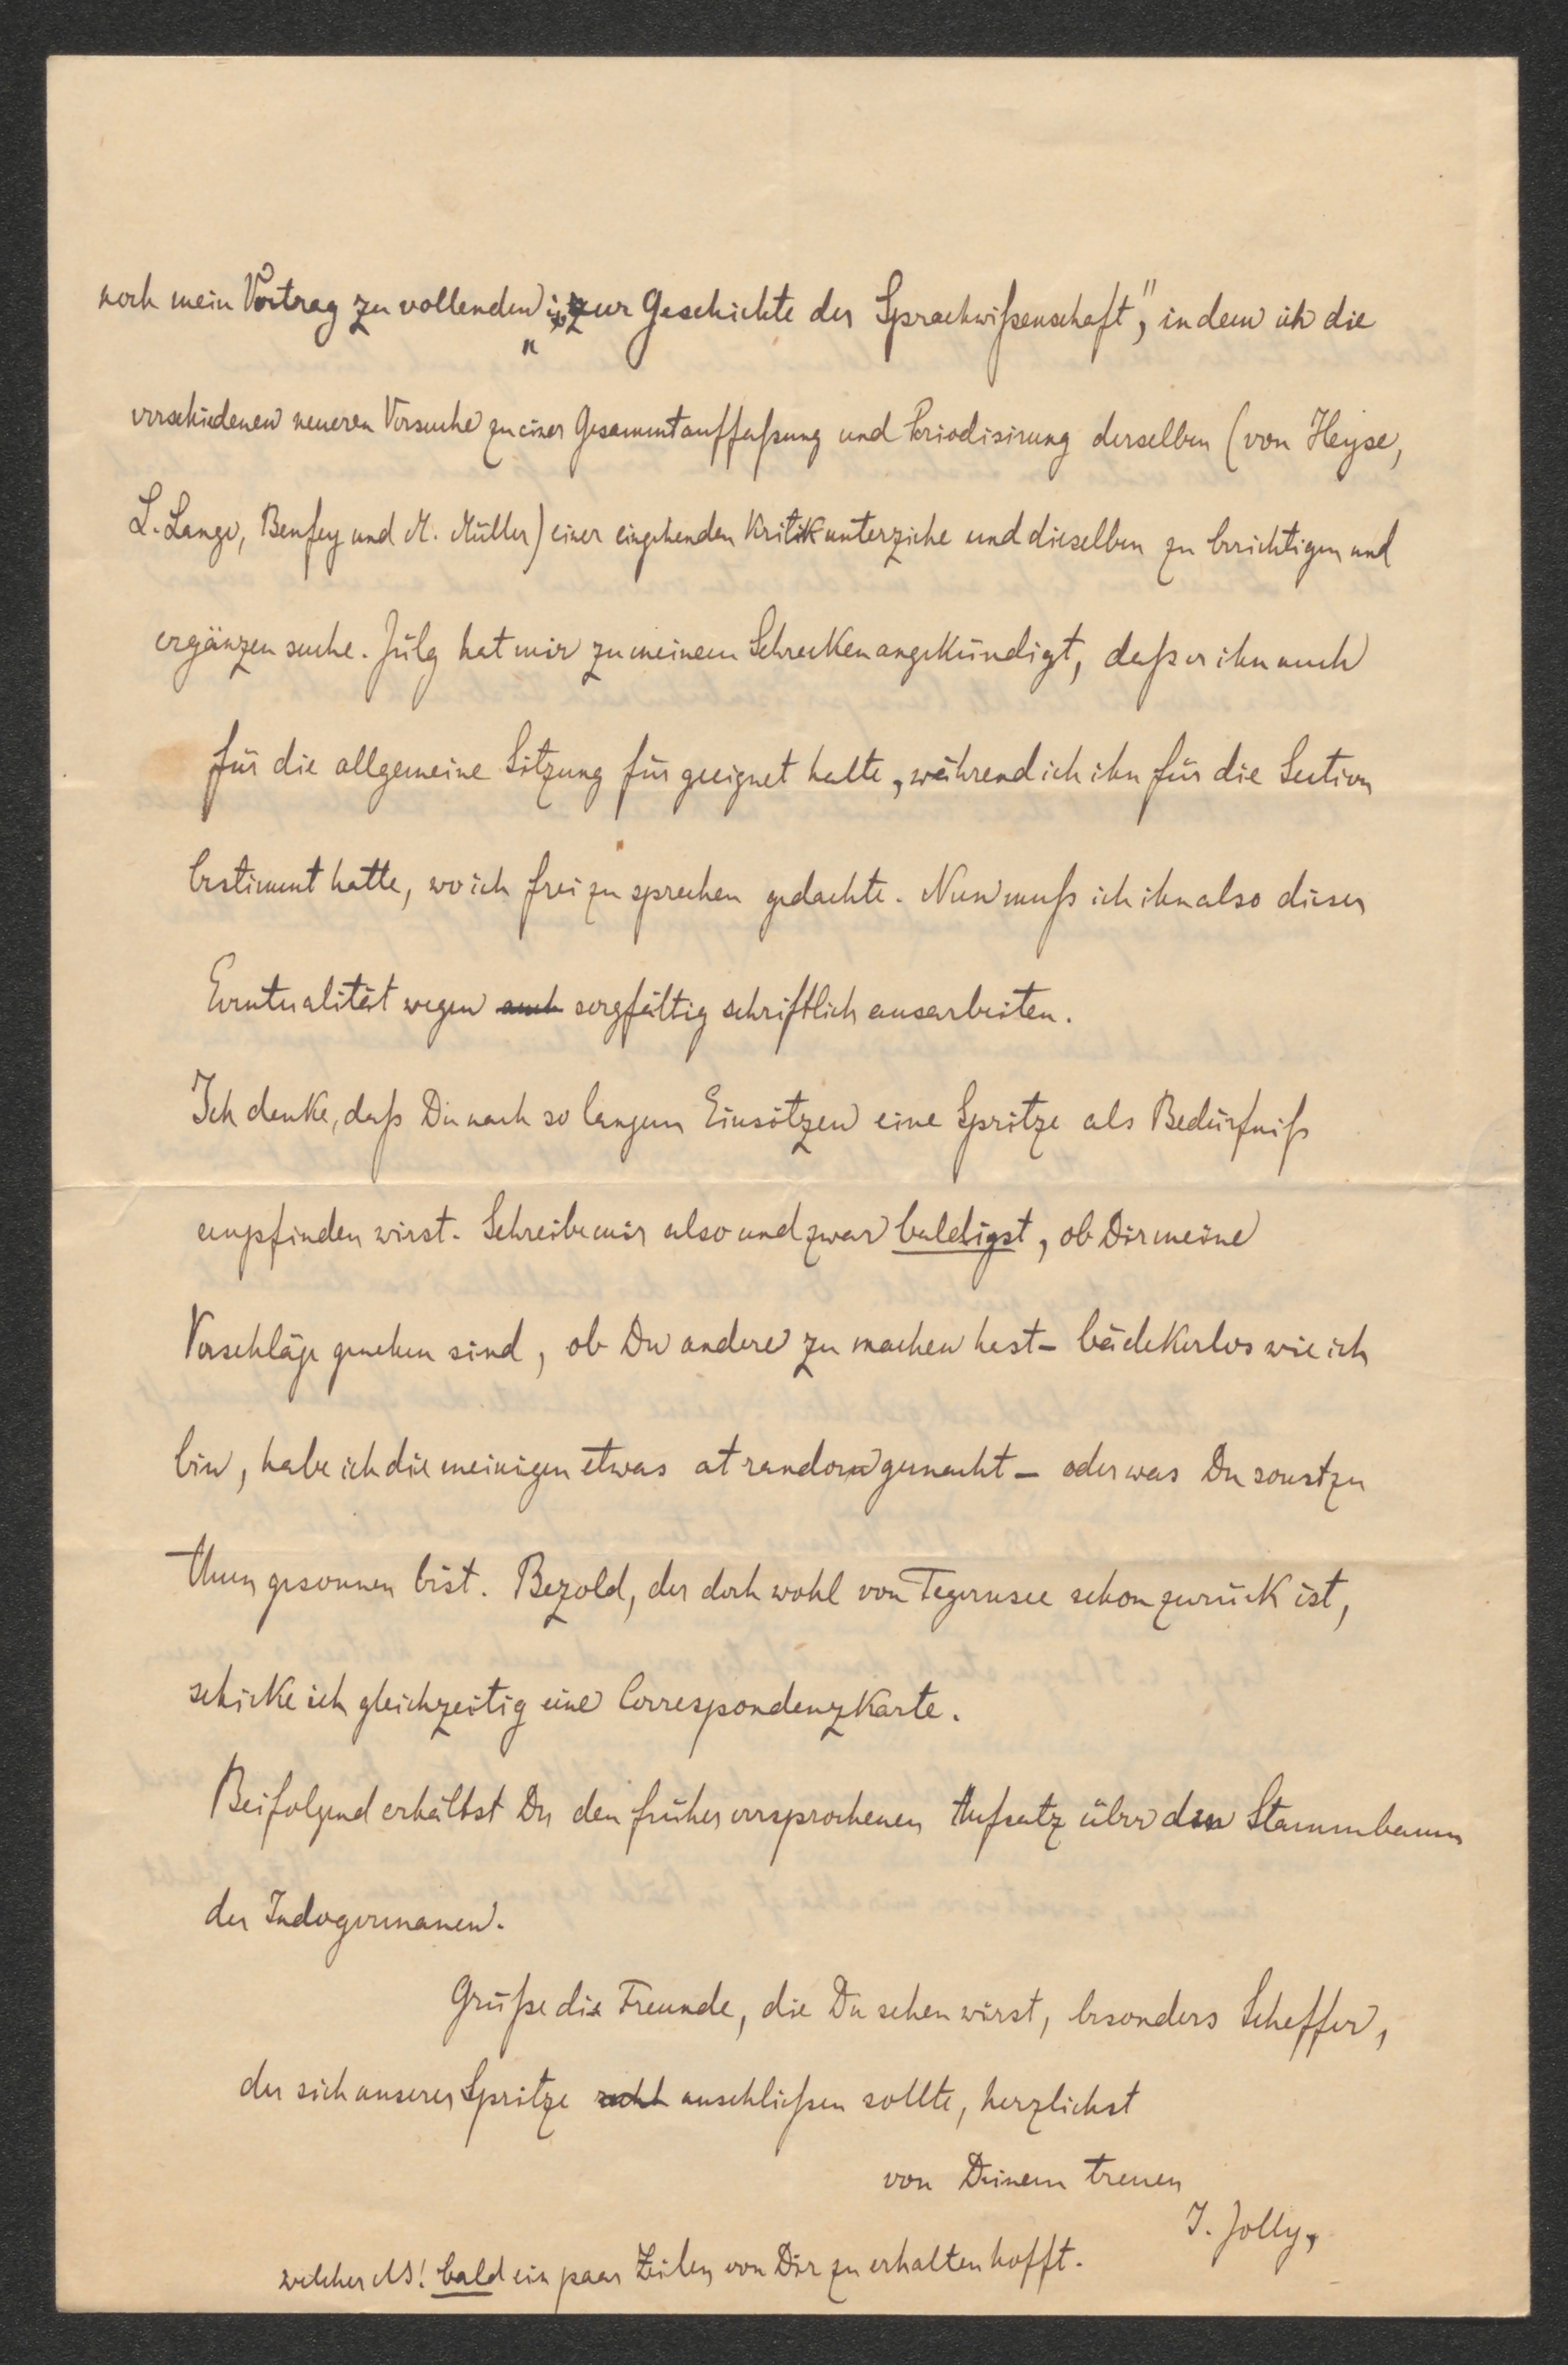 noch mein Vortrag zu vollenden „zur Geschichte der Sprachwißenschaft“, in dem ich die
verschiedenen neueren Versuche zu einer Gesammtauffaßung und Periodisirung derselben (von Heyse,
L. Lange, Benfey und M. Müller) einer eingehenden Kritik unterziehe und dieselben zu berichtigen und
ergänzen suche. Jülg hat mir zu meinem Schrecken angekündigt, daß er ihn auch
für die allgemeine Sitzung für geeignet halte, während ich ihn für die Section
bestimmt hatte, wo ich frei zu sprechen gedachte. Nun muß ich ihn also dieser
Eventualität wegen auch sorgfältig schriftlich ausarbeiten.
Ich denke, daß Du nach so langem Einsitzen eine Spritze als Bedürfniß
empfinden wirst. Schreibe mir also und zwar baldigst, ob Dir meine
Vorschläge genehm sind, ob Du andere zu machen hast – bädekerlos wie ich
bin, habe ich die meinigen etwas at random gemacht – oder was Du sonst zu
thun gesonnen bist. Bezold, der doch wohl von Tegernsee schon zurück ist,
schicke ich gleichzeitig eine Correspondenzkarte.
Beifolgend erhältst Du den früher versprochenen Aufsatz über den Stammbaum
der Indogermanen.
Grüße die Freunde, die Du sehen wirst, besonders Scheffer,
der sich unserer Spritze anschließen sollte, herzlichst
von Deinem treuen
J. Jolly,
welcher NB! bald ein paar Zeilen von Dir zu erhalten hofft.